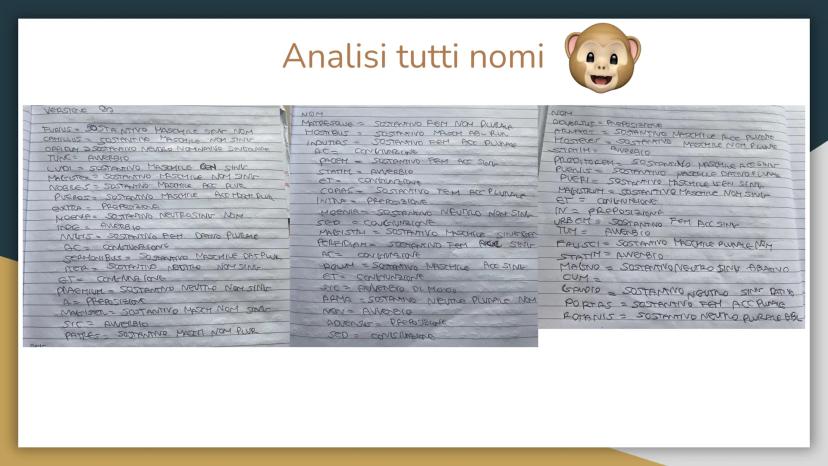 Analisi tutti nomi
VERSIONE
FURIUS = SOSTANTIVO MASCHILE SING NOM
CAMILLUS = SOSTANTIVO MASCHILE NOM SING
OPPIDUM = SOSTANTIVO NEUTRO NOMINATIVO SINGOLARE
TUNC = AVVERBIO
LUDI = SOSTANTIVO MASCHILE GEN SING
MAGISTER = SOSTANTIVO MASCHILE NOM SING
NOBILES = SOSTANTIVO MASCHILE ACC PLUR
PUEROS = SOSTANTIVO MASCHILE ACC PLUR
EXTRA = PREPOSIZIONE
MOENIA = SOSTANTIVO NEUTRO SING NOM
INDE = AVVERBIO
SOSTANTIVO FEM DATIVO PLURALE
AC = CONGIUNZIONE
SERMONIBUS = SOSTANTIVO MASCHILE DAT PLUR
ITER = SOSTANTIVO NEUTRO NOM SING
ET = CONGIUNZIONE
PRAEMIUM = SOSTANTIVO NEUTRO NOM SING
A = PREPOSIZIONE
MAGISTER = SOSTANTIVO MASCH NOM SING
SIC = AVVERBIO
PATRES = SOSTANTIVO MASCH NOM PLUR
NOM
MATRESQUE = SOSTANTIVO FEM NOM PLURALE
HOSTIBUS = SOSTANTIVO MASCH ABL PLUR
INDUTIAS = SOSTANTIVO FEM ACC PLURALE
AC = CONGIUNZIONE
PACEM = SOSTANTIVO FEM ACC SING
STATIM = AVVERBIO
ET = CONGIUNZIONE
COPIAS = SOSTANTIVO FEM ACC PLURALE
INTRA = PREPOSIZIONE
MOENIA = SOSTANTIVO NEUTRO NOM SING
SED = CONGIUNZIONE
MAGISTRI = SOSTANTIVO MASCHILE SING GEN
PERFIDIAM = SOSTANTIVO FEM ACC SING
AC = CONGIUNZIONE
DOLUM = SOSTANTIVO MASCHILE ACC SING
SIC = AVVERBIO DI MODO
ARMA = SOSTANTIVO NEUTRO PLURALE NOM
NON = AVVERBIO
ADVERSUS = PREPOSIZIONE
SED = CONGIUNZIONE
NOM
ADVERSUS = PREPOSIZIONE
ARMATOS = SOSTANTIVO MASCHILE ACC PLURALE
HOSTES = SOSTANTIVO MASCHILE NOM PLURALE
STATIM = AVVERBIO
PRODITOREM = SOSTANTIVO MASCHILE ACC SING
PUERIS = SOSTANTIVO MASCHILE DATIVO PLURALE
PUERI = SOSTANTIVO MASCHILE GEN SING
MAGISTRUM = SOSTANTIVO MASCHILE NOM SING
ET = CONGIUNZIONE
IN = PREPOSIZIONE
URBEM = SOSTANTIVO FEM ACC SING
TUM = AVVERBIO
FALISCI = SOSTANTIVO MASCHILE PLURALE NOM
STATIM = AVVERBIO
MAGNO = SOSTANTIVO NEUTRO SING ABLATIVO
CUM =
GAUDIO = SOSTANTIVO NEUTRO SING DATIVO
PORTAS = SOSTANTIVO FEM ACC PLURALE
ROMANIS = SOSTANTIVO NEUTRO PLURALE ABL